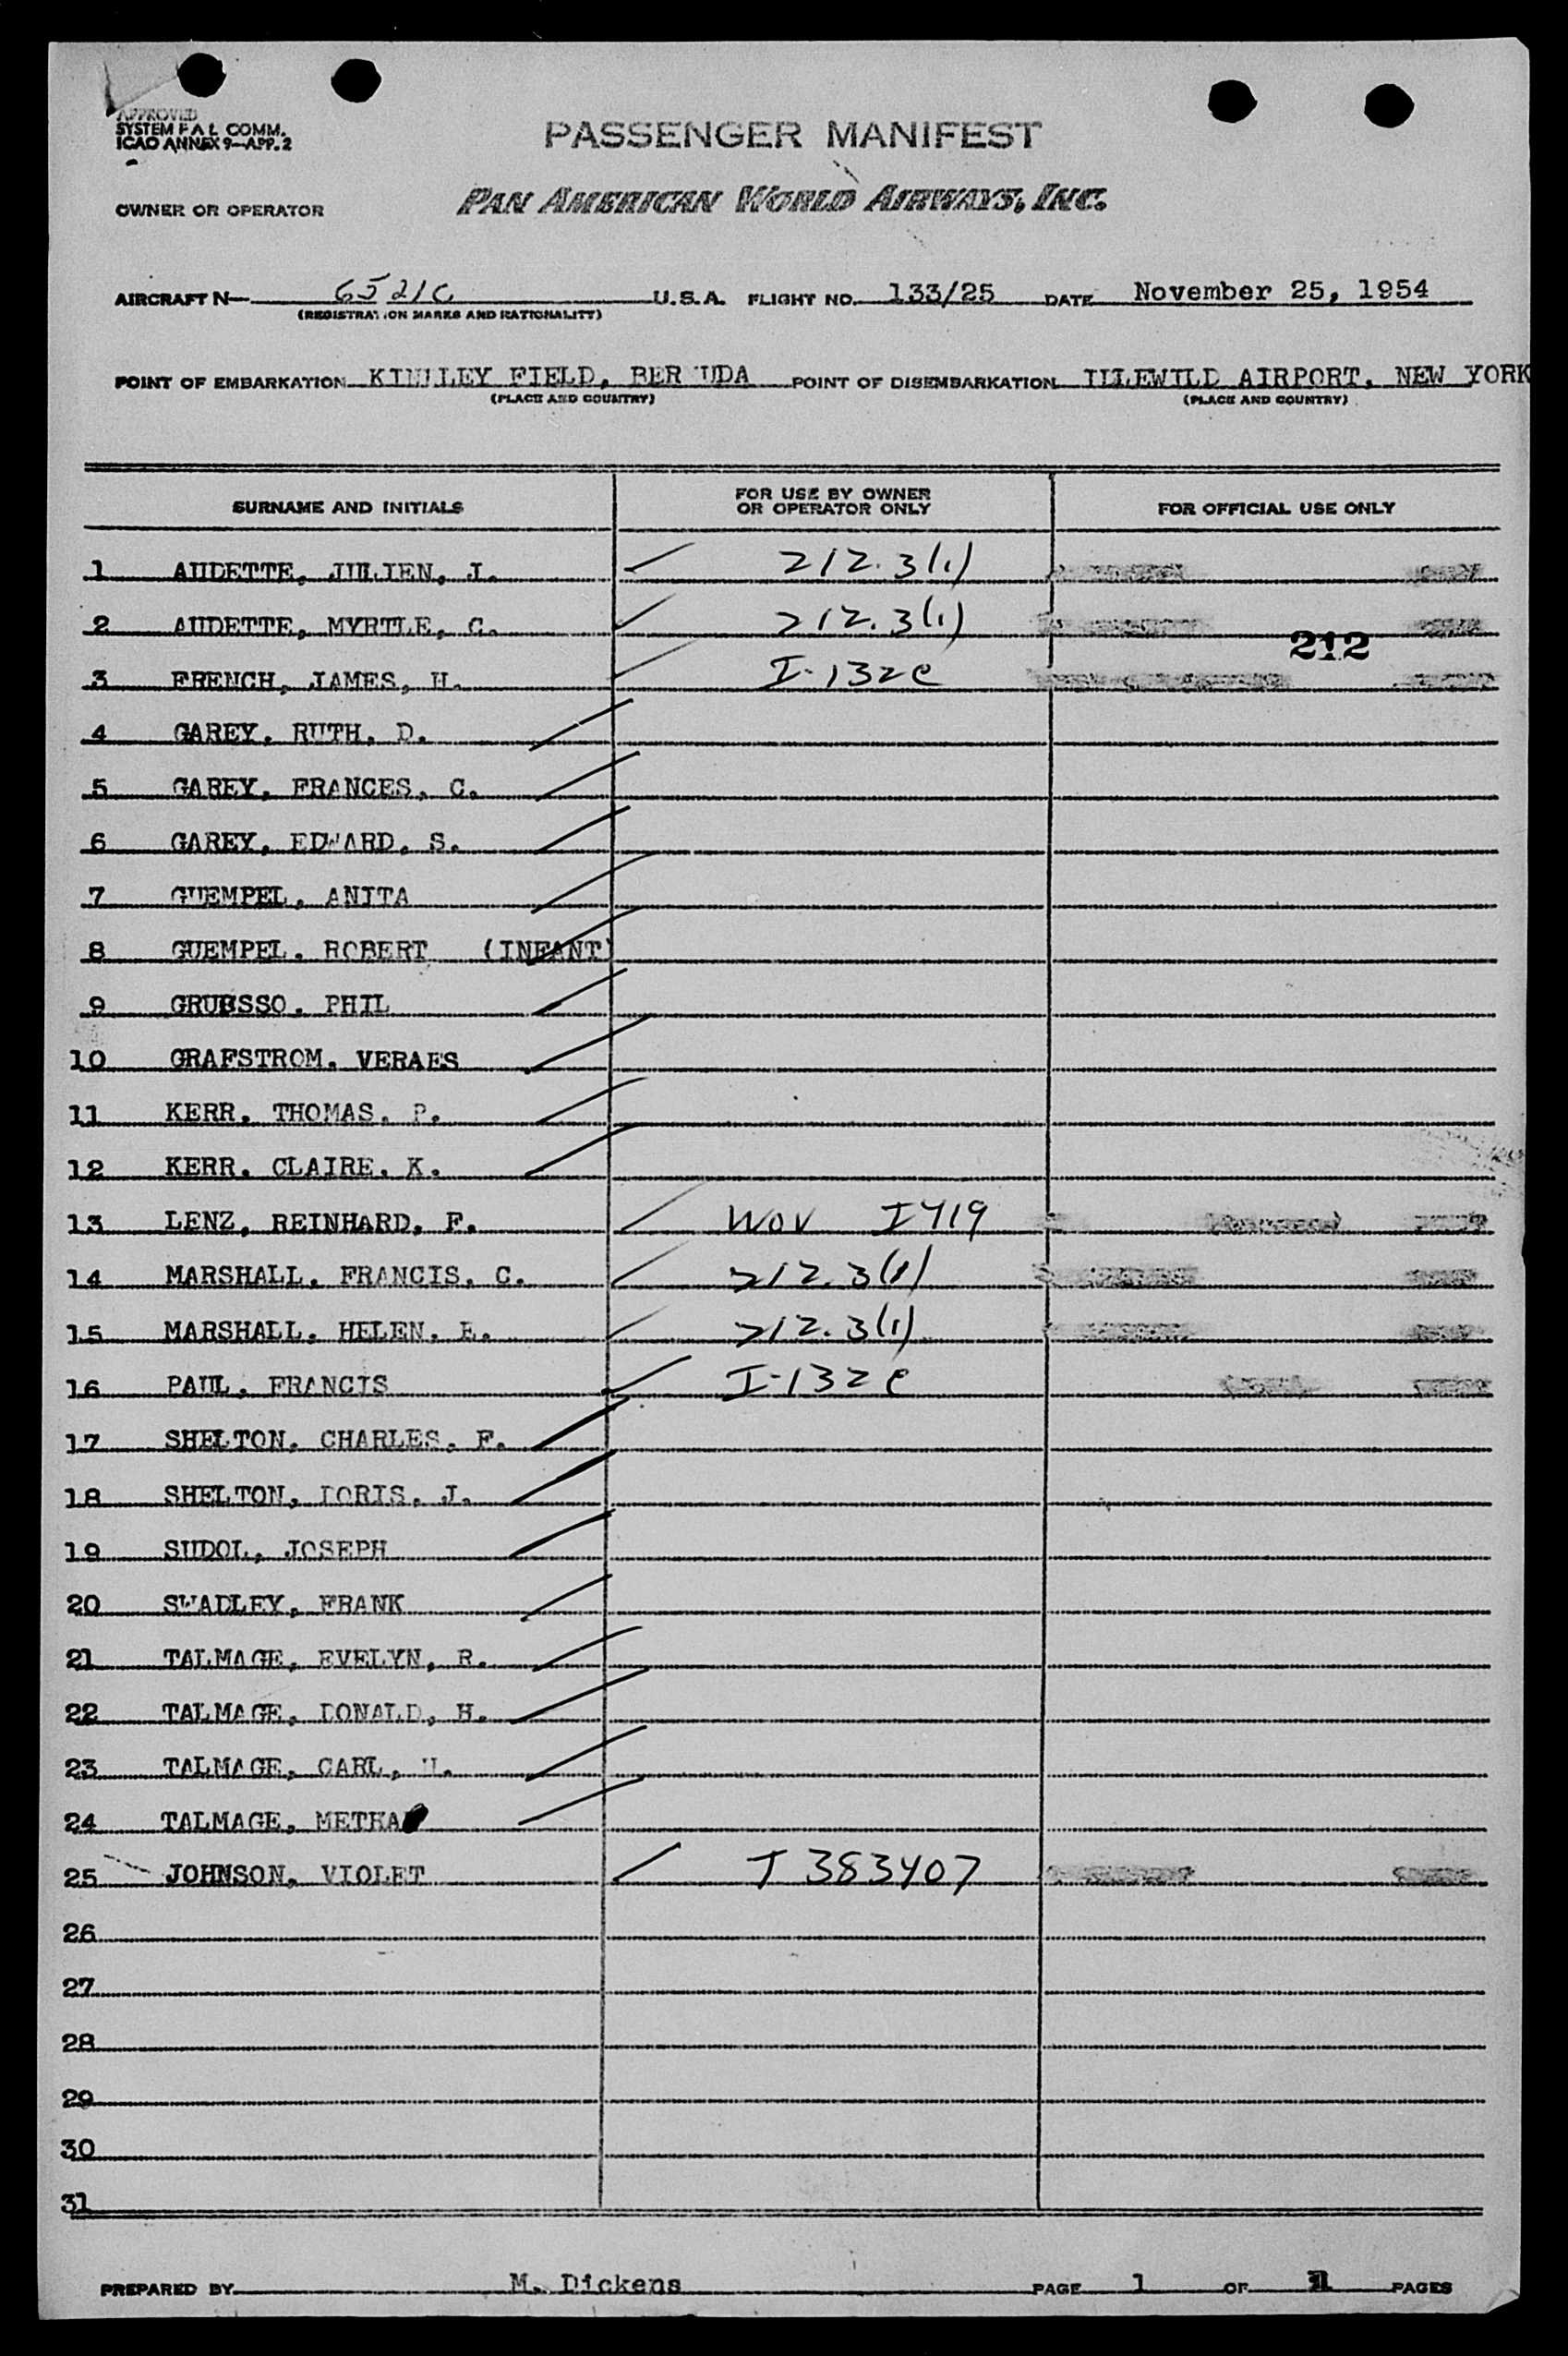 APPROVED
SYSTEM F A L COMM.
ICAO ANNEX 9—APP. 2
PASSENGER MANIFEST
OWNER OR OPERATOR PAN AMERICAN WORLD AIRWAYS, INC.
AIRCRAFT N— 6521C U.S.A. FLIGHT NO. 133/25 DATE November 25, 1954
(REGISTRATION MARKS AND NATIONALITY)
POINT OF EMBARKATION KINDLEY FIELD, BERMUDA POINT OF DISEMBARKATION IDLEWILD AIRPORT, NEW YORK
(PLACE AND COUNTRY) (PLACE AND COUNTRY)
SURNAME AND INITIALS FOR USE BY OWNER OR OPERATOR ONLY FOR OFFICIAL USE ONLY
1 AUDETTE, JULIEN, J. 212.3(1)
2 AUDETTE, MYRTLE, C. 212.3(1)
212
3 FRENCH, JAMES, H. I-132e
4 GAREY, RUTH, D.
5 GAREY, FRANCES, C.
6 GAREY, EDWARD, S.
7 GUEMPEL, ANITA
8 GUEMPEL, ROBERT (INFANT)
9 GRUESSO, PHIL
10 GRAFSTROM, VERAES
11 KERR, THOMAS, P.
12 KERR, CLAIRE, K.
13 LENZ, REINHARD, F. WOV I419
14 MARSHALL, FRANCIS, C. 212.3(1)
15 MARSHALL, HELEN, E. 212.3(1)
16 PAUL, FRANCIS I-132e
17 SHELTON, CHARLES, F.
18 SHELTON, DORIS, J.
19 SUDOL, JOSEPH
20 SWADLEY, FRANK
21 TALMAGE, EVELYN, R.
22 TALMAGE, DONALD, H.
23 TALMAGE, CARL,
24 TALMAGE, METHA
25 JOHNSON, VIOLET T 383407
26
27
28
29
30
31
PREPARED BY M. Dickens PAGE 1 OF 1 PAGES